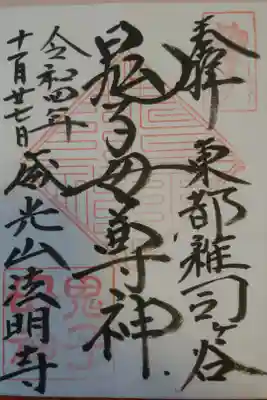 奉拝 東都雑司ヶ谷
鬼子母尊神
威光山法明寺
令和四年
十一月廿七日